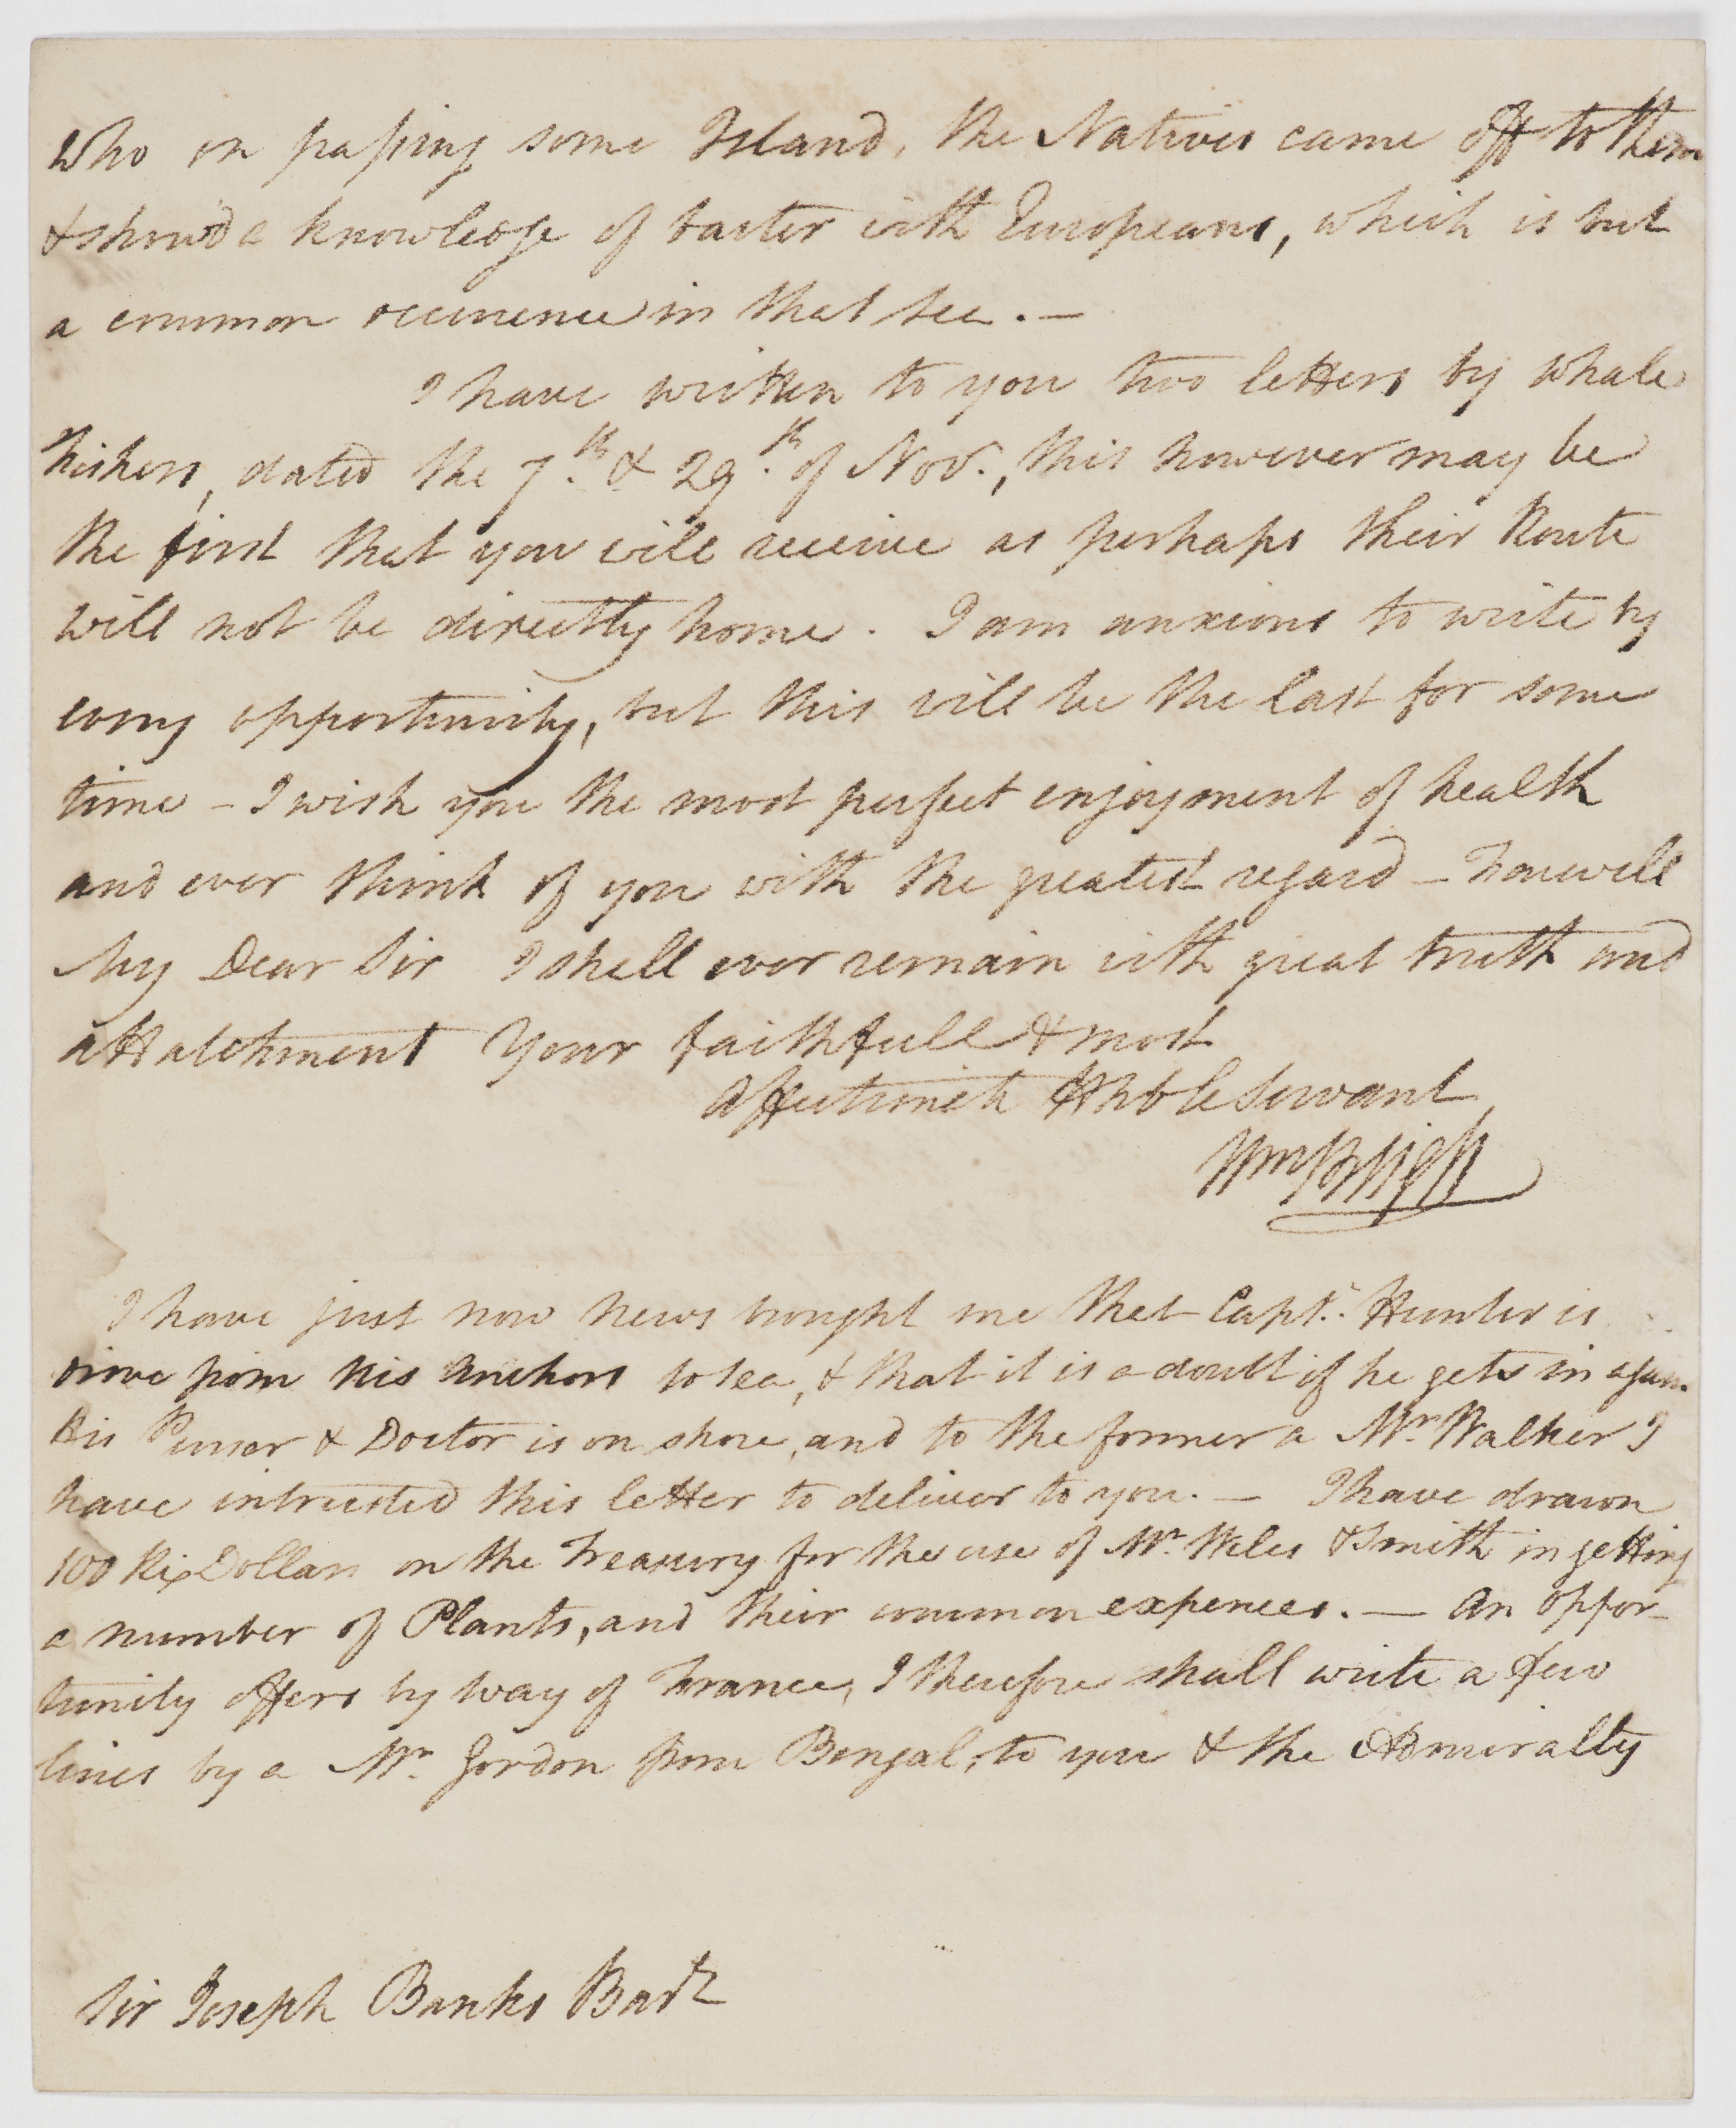 who on passing some Island, the Natives came off to them
& showed a knowledge of barter with Europeans, which is but
a common occurrence in that Sea. —
I have written to you two letters by Whale
Fishers, dated the 7th. & 29th. of Novr., this however may be
the first that you will receive as perhaps their Route
will not be directly home. I am anxious to write by
every opportunity, but this will be the last for some
time – I wish you the most perfect enjoyment of health
and ever think of you with the greatest regard – Farewell
My Dear Sir I shall ever remain with great truth and
attatchment Your faithfull & most
affectionate Hble Servant
Wm Bligh
I have just now news brought me that Capt. Hunter is
drove from his Anchors to sea, & that it is a doubt if he gets in again.
His Purser & Doctor is on shore, and to the former a Mr. Walker I
have intrusted this letter to deliver to you. — I have drawn
100 Rix Dollars on the Treasury for the use of Mr. Wiles & Smith in getting
a number of Plants, and their common expences. — An oppor-
tunity offers by way of France, I therefore shall write a few
lines by a Mr. Gordon from Bengal, to you & the Admiralty
Sir Joseph Banks Bart